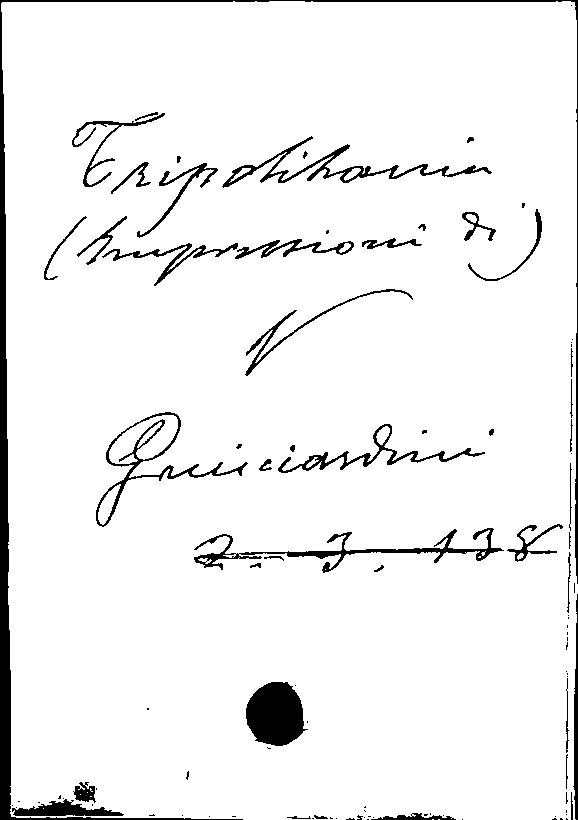 Tripolitania
(Impressioni di)
V
Guicciardini
2. 3. 138